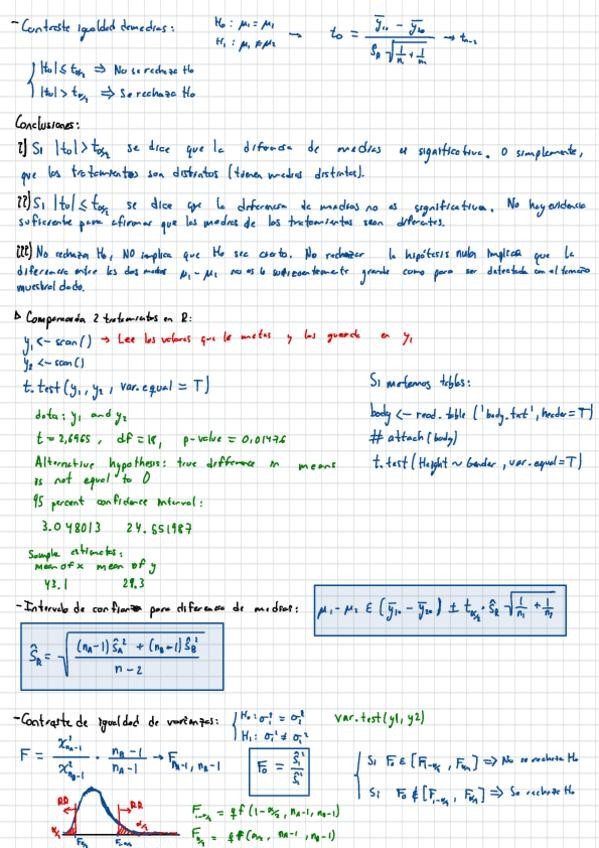 - Contraste igualdad de medias: H₀: μ₁ = μ₁ → t₀ = (ȳ₁. - ȳ₂.) / (Ŝ_R √(1/n₁ + 1/n₂)) → t_{n-2}
H₁: μ₁ ≠ μ₂
|t₀| ≤ t_{α/2} ⇒ No se rechaza H₀
|t₀| > t_{α/2} ⇒ Se rechaza H₀
Conclusiones:
i) Si |t₀| > t_{α/2} se dice que la diferencia de medias es significativa. O simplemente,
que los tratamientos son distintos (tienen medias distintas).
ii) Si |t₀| ≤ t_{α/2} se dice que la diferencia de medias no es significativa. No hay evidencia
suficiente para afirmar que las medias de los tratamientos sean diferentes.
iii) No rechazar H₀, NO implica que H₀ sea cierta. No rechazar la hipótesis nula implica que la
diferencia entre las dos medias μ₁ - μ₂ no es lo suficientemente grande como para ser detectada con el tamaño
muestral dado.
Comparación 2 tratamientos en R:
y₁ <- scan() → Lee los valores que le metas y los guarda en y₁
y₂ <- scan()
t.test(y₁, y₂, var.equal = T)
data: y₁ and y₂
t = 2,6965, df = 18, p-value = 0,01476
Alternative hypothesis: true difference in means
is not equal to 0
95 percent confidence interval:
3.048013 24.551987
Sample estimates:
mean of x mean of y
43.1 29.3
Si metemos tablas:
body <- read.table('body.txt', header = T)
# attach(body)
t.test(Height ~ Gender, var.equal = T)
- Intervalo de confianza para diferencia de medias: μ₁ - μ₂ ∈ (ȳ₁. - ȳ₂.) ± t_{α/2} · Ŝ_R √(1/n₁ + 1/n₂)
Ŝ_R = √(((n_A - 1) Ŝ_A² + (n_B - 1) Ŝ_B²) / (n - 2))
- Contraste de igualdad de varianzas: H₀: σ₁² = σ₂² var.test(y1, y2)
H₁: σ₁² ≠ σ₂²
F = χ²_{n_A-1} / χ²_{n_B-1} · (n_B - 1) / (n_A - 1) → F_{n_A-1, n_B-1}
F₀ = Ŝ₁² / Ŝ₂²
Si F₀ ∈ [F_{1-α/2}, F_{α/2}] ⇒ No se rechaza H₀
Si F₀ ∉ [F_{1-α/2}, F_{α/2}] ⇒ Se rechaza H₀
RR RR
F_{1-α/2} = qf(1-α/2, n_A-1, n_B-1)
F_{α/2} = qf(α/2, n_A-1, n_B-1)
α/2 F_{α/2} F_{1-α/2} α/2